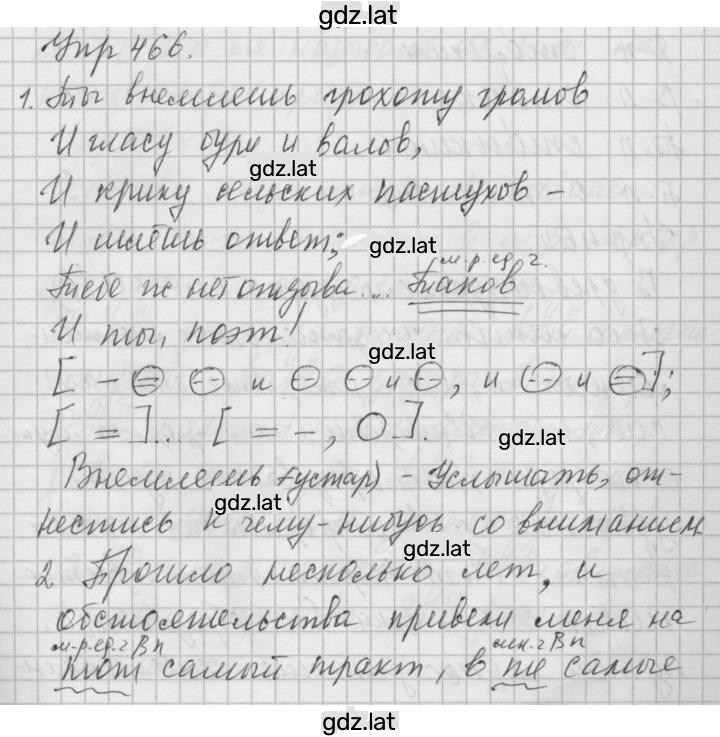 gdz.lat
Упр 466.
1. Ты внемлешь грохоту громов
И гласу бури и валов,
gdz.lat
И крику сельских пастухов –
И шлёшь ответ;
gdz.lat
м.р.ед.ч.
Тебе ж нет отзыва... Таков
И ты, поэт!
gdz.lat
[ – и и , и и ];
[ = ]... [ = –, О ].
gdz.lat
Внемлешь (устар) – Услышать, от-
gdz.lat
нестись к чему-нибудь со вниманием
gdz.lat
2 Прошло несколько лет, и
обстоятельства привели меня на
м.р.ед.ч В п мн.ч В п
тот самый тракт, в те самые
gdz.lat